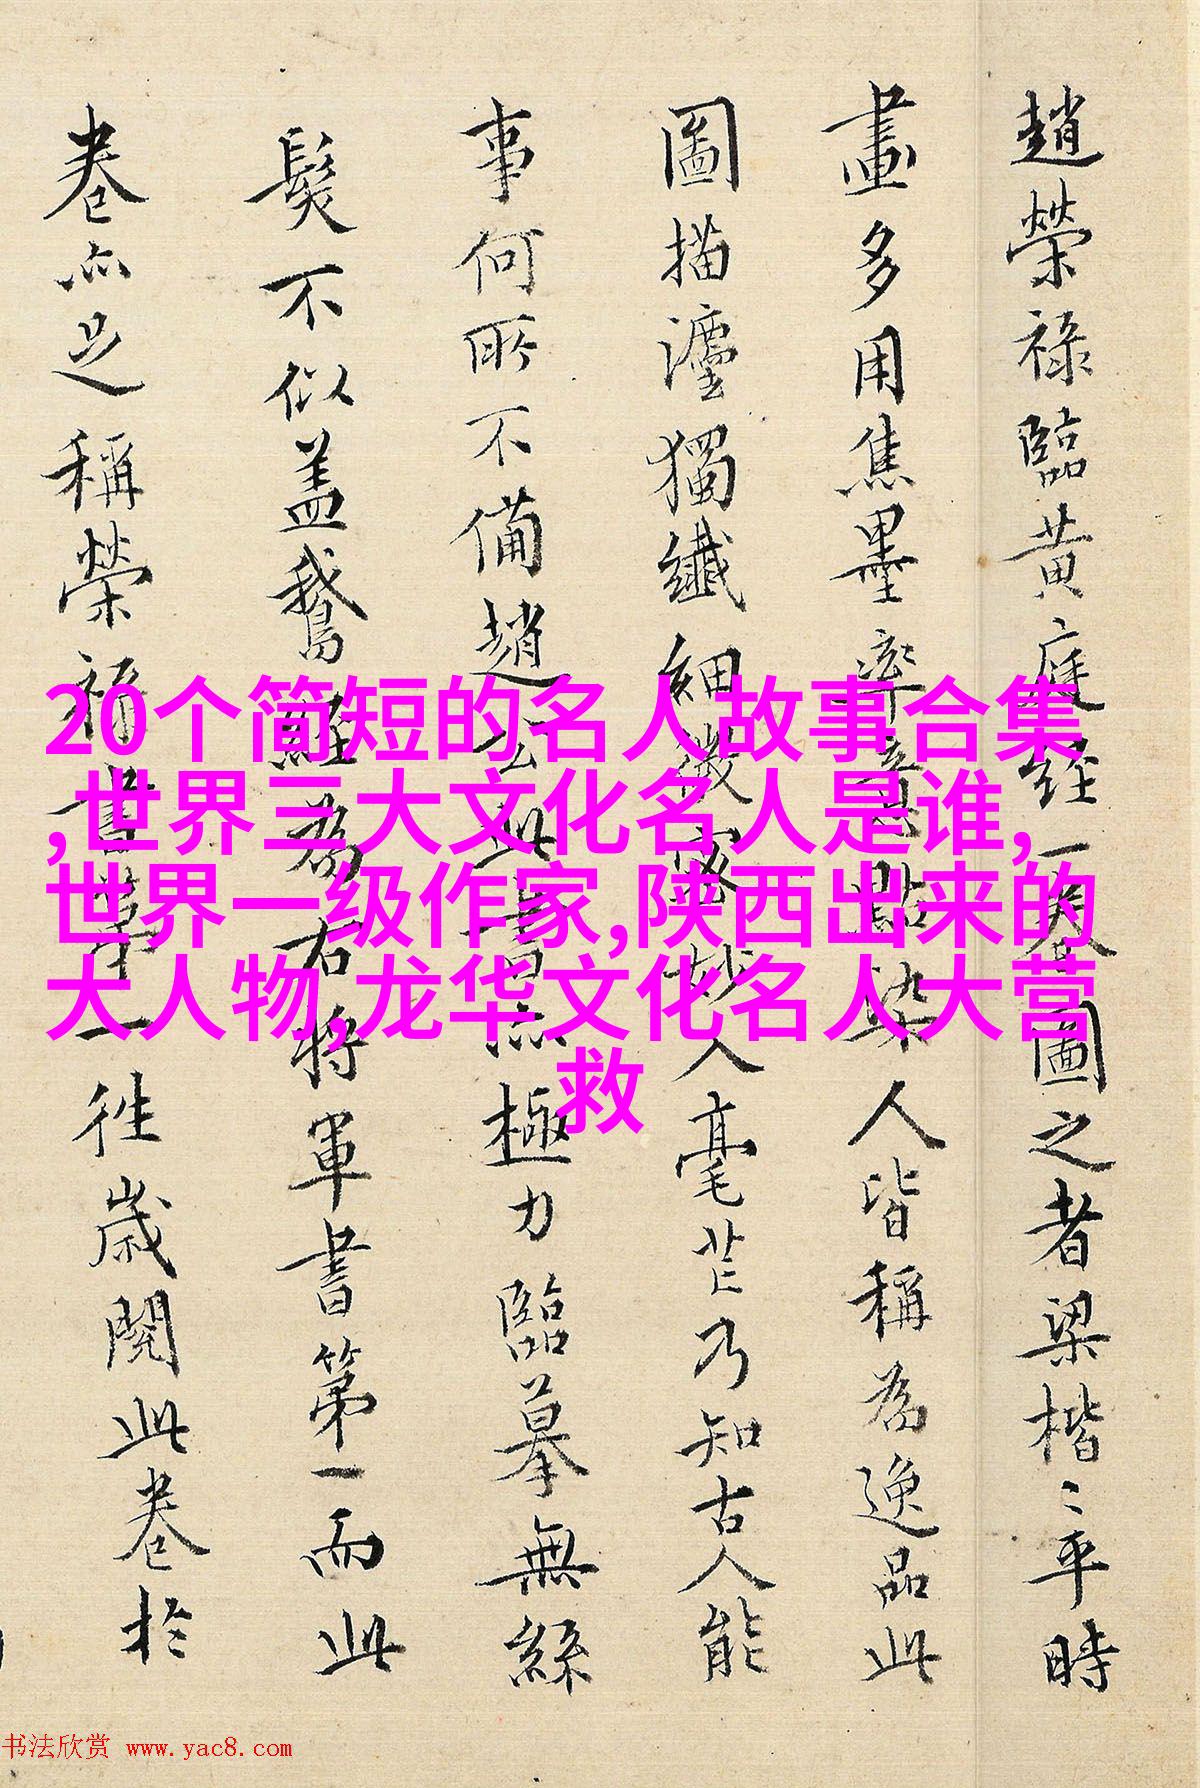 趙榮祿臨黃庭經一卷圖之者梁楷〻平時
畫多用焦墨率意點染人皆稱為逸品此
圖描灋獨纖細微密妙入毫芒乃知古人能
事何所不備趙公此書亦極力臨摹無絲
髮不似蓋鵝經為右將軍書第一而此
卷亦足稱榮祿書第一往歲閱此卷於
20个简短的名人故事合集
,世界三大文化名人是谁,
世界一级作家,陕西出来的
大人物,龙华文化名人大营
救
书法欣赏 www.yac8.com